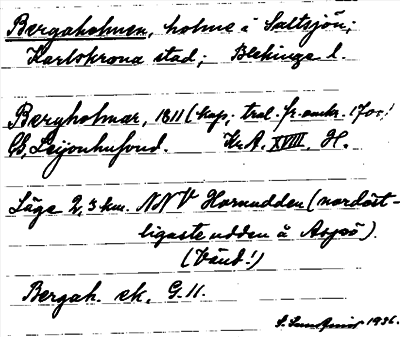 Bergaholmen, holme i Saltsjön;
Karlskrona stad; Blekinge l.
Bergholmar, 1811 (kap; tral. fr. omkr. 1700!
Gb. Leijonhufvud. Kr.A. XVIII. H.
Läge 2,3 km. NNV Hornudden (nordöst-
ligaste udden å Aspö).
(Vänd!)
Bergah. ek. G. 11.
1936.